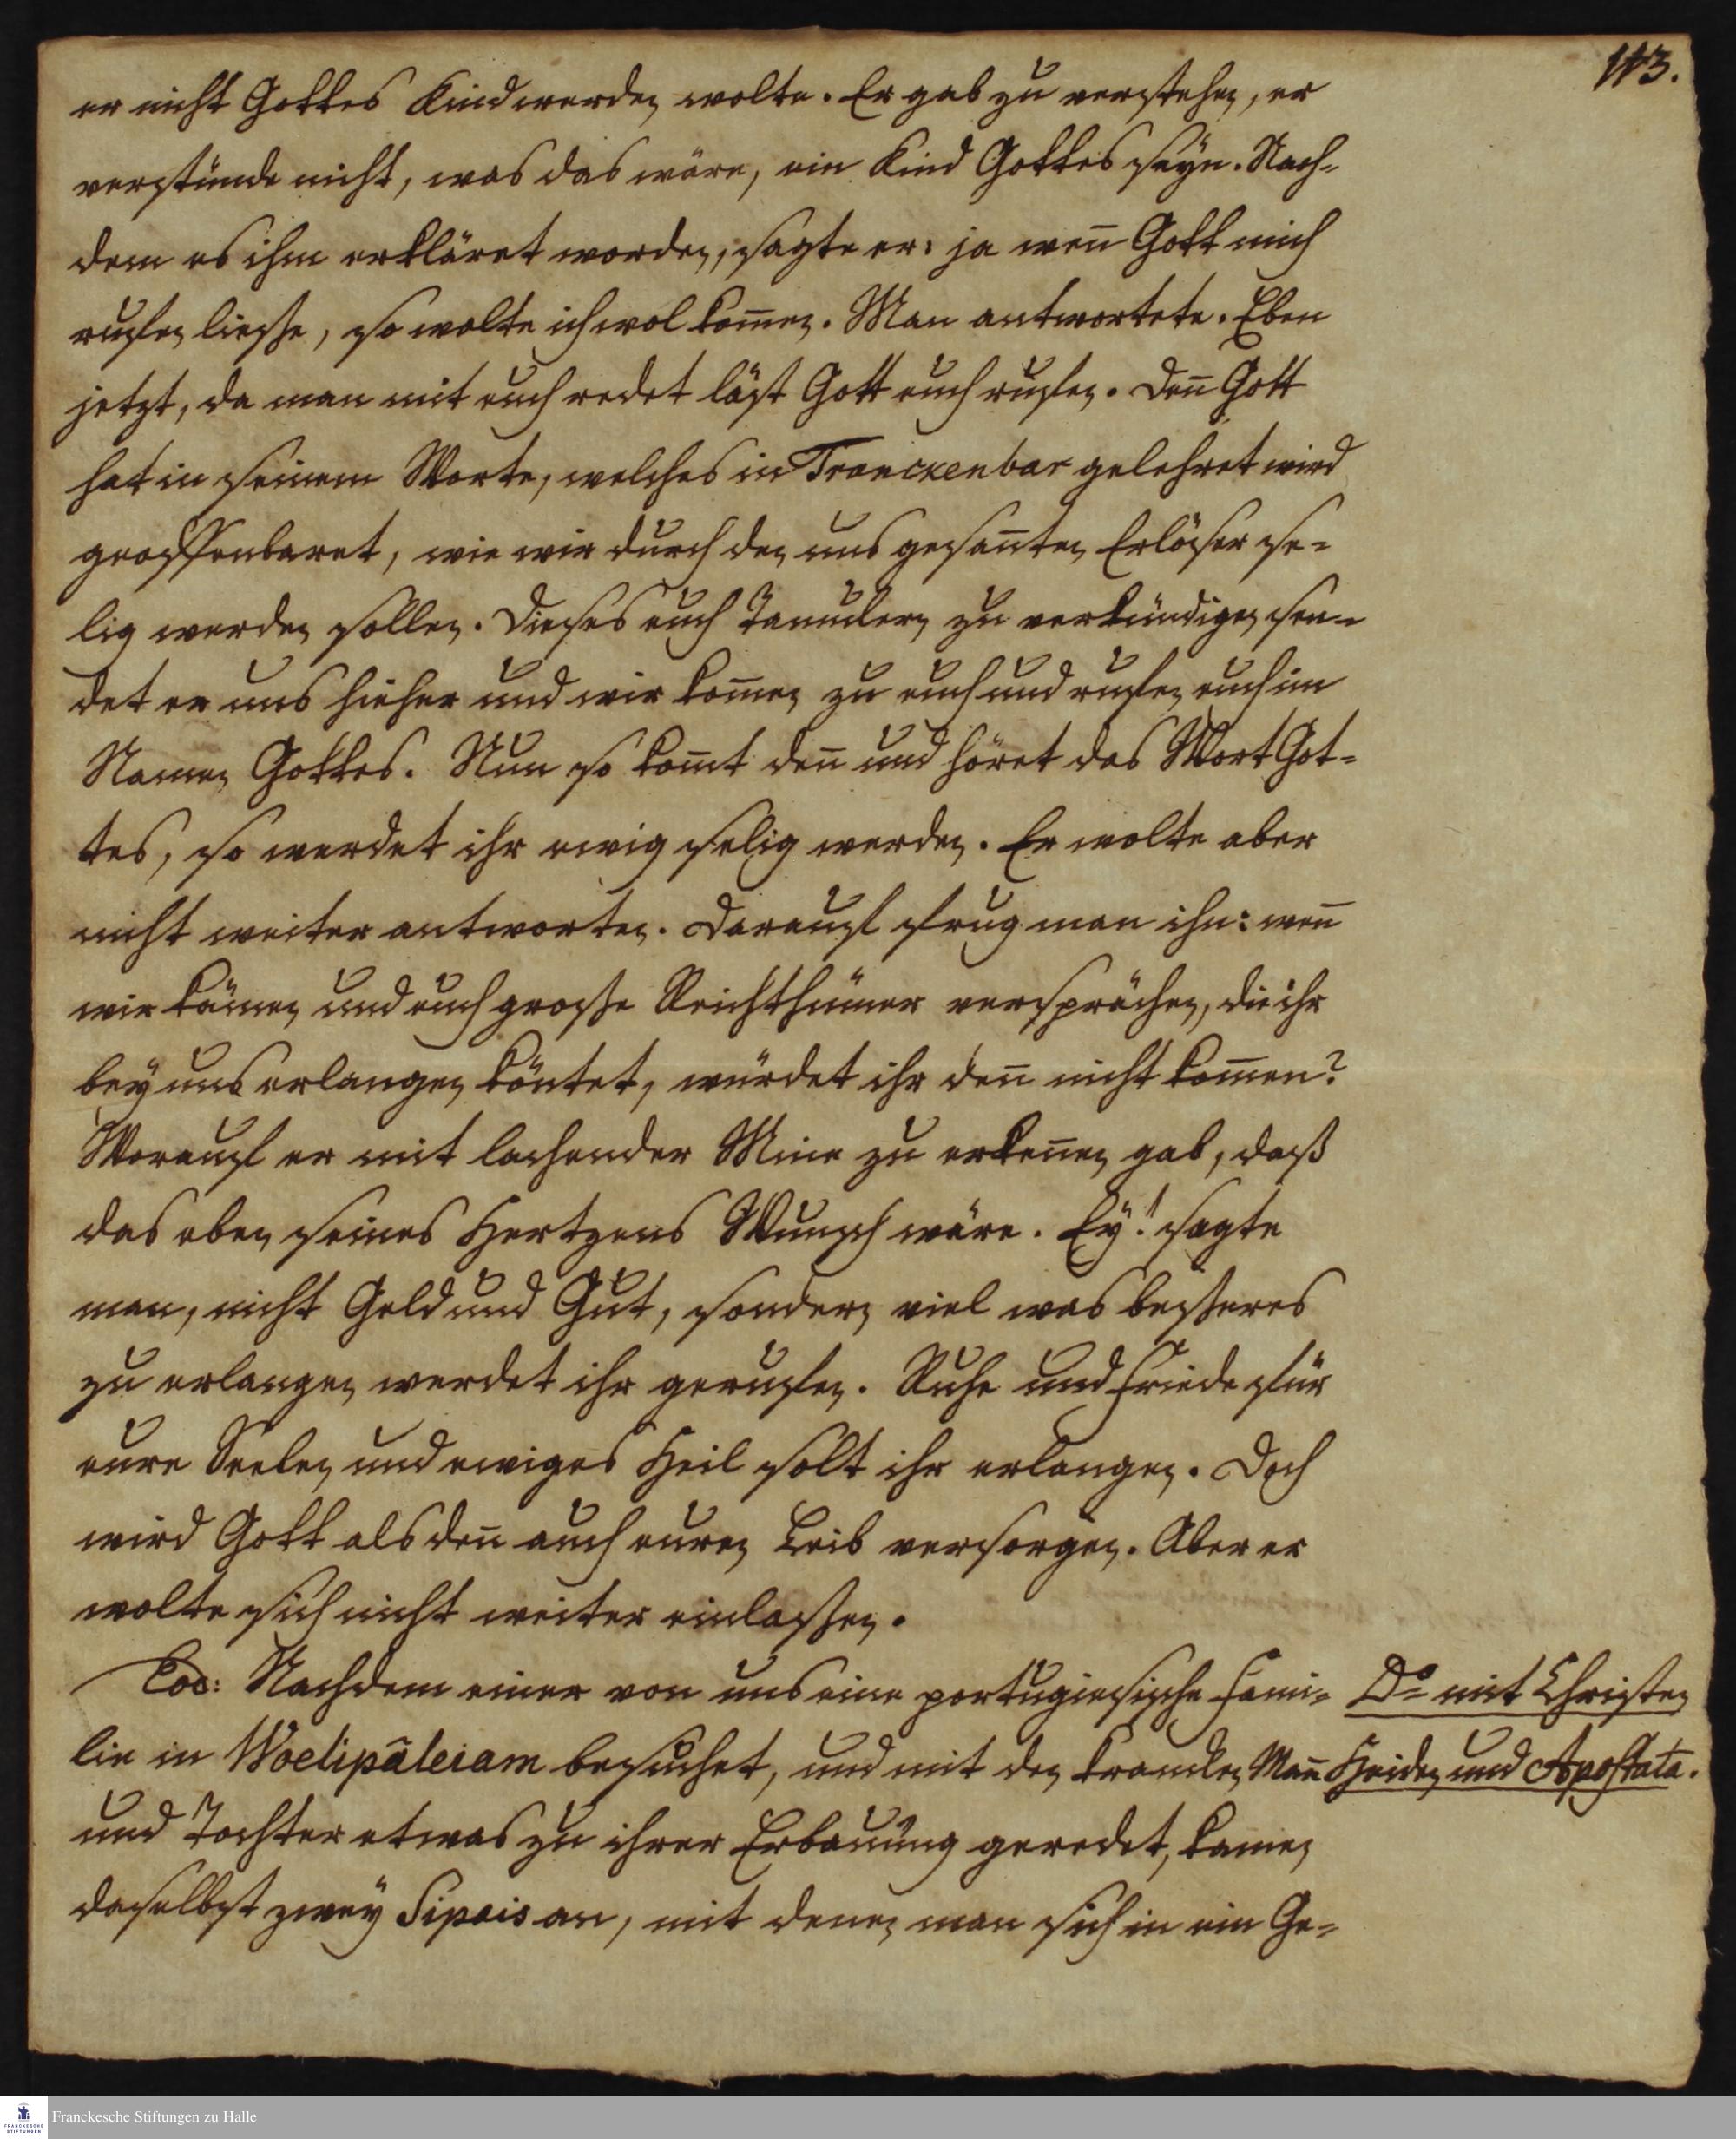 113.
er nicht Gottes Kind werden wolte. Er gab zu verstehen, er
verstünde nicht, was das wäre, ein Kind Gottes seyn. Nach-
dem es ihm erkläret worden, sagte er: ja weñ Gott mich
rufen liesse, so wolte ich wol kom̃en. Man antwortete. Eben
jetzt, da man mit euch redet läst Gott euch rufen. Deñ Gott
hat in seinem Worte, welches in Tranckenbar gelehret wird
geoffenbaret, wie wir durch den uns gesañten Erlöser se-
lig werden sollen. Dieses euch Tamulern zu verkündigen sen-
det er uns hieher und wir kom̃en zu euch und rufen euch im
Namen Gottes. Nun so kom̃t deñ und höret das Wort Got-
tes, so werdet ihr ewig selig werden. Er wolte aber
nicht weiter antworten. Darauf frug man ihn: weñ
wir kämen und euch grosse Reichthümer versprächen, die ihr
bey uns erlangen köntet, würdet ihr deñ nicht kom̃en?
Worauf er mit lachender Mine zu erkeñen gab, daß
das eben seines Hertzens Wunsch wäre. Ey! sagte
man, nicht Geld und Gut, sondern viel was besseres
zu erlangen werdet ihr gerufen. Ruhe und Friede für
eure Seelen und ewiges Heil solt ihr erlangen. Doch
wird Gott alsdeñ auch euren Leib versorgen. Aber er
wolte sich nicht weiter einlassen.
Eod: Nachdem einer von uns eine portugiesische Fami-
Do mit Christen
lie in Woelipâleiam besuchet, und mit den krancken Mañ
Heiden und Apostata.
und Tochter etwas zu ihrer Erbauung geredet, kamen
daselbst zwey Sipais an, mit denen man sich in ein Ge-
Franckesche Stiftungen zu Halle
FRANCKESCHE
STIFTUNGEN